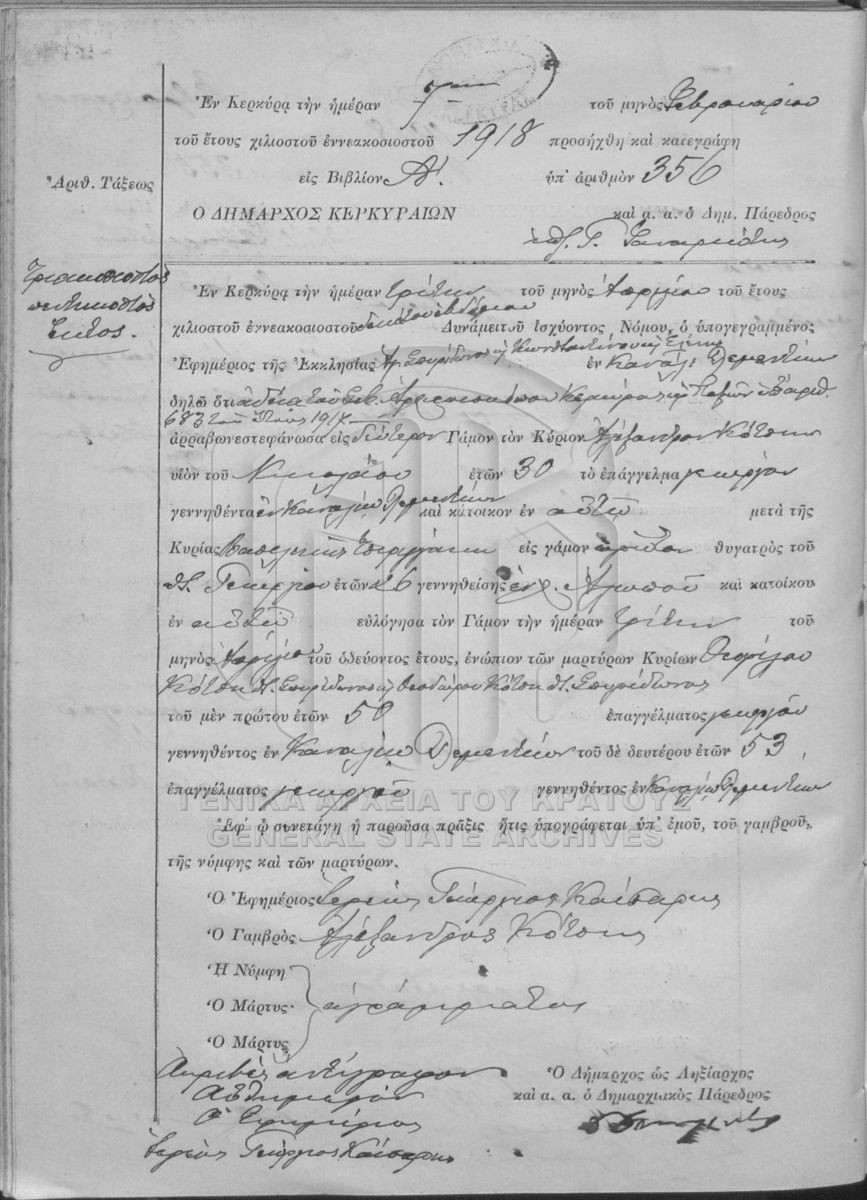 Ἐν Κερκύρᾳ τὴν ἡμέραν 7 τοῦ μηνὸς Φεβρουαρίου
τοῦ ἔτους χιλιοστοῦ ἐννεακοσιοστοῦ 1918 προσήχθη καὶ κατεγράφη
Ἀριθ. Τάξεως
εἰς Βιβλίον Α΄. ὑπ' ἀριθμὸν 356
Ο ΔΗΜΑΡΧΟΣ ΚΕΡΚΥΡΑΙΩΝ καὶ α. α. ὁ Δημ. Πάρεδρος
Τριακοσιοστὸς
πεντηκοστὸς
ἕκτος.
Ἐν Κερκύρᾳ τὴν ἡμέραν τρίτην τοῦ μηνὸς Ἀπριλίου τοῦ ἔτους
χιλιοστοῦ ἐννεακοσιοστοῦ δεκάτου ἑβδόμου Δυνάμει τοῦ ἰσχύοντος Νόμου, ὁ ὑπογεγραμμένος
Ἐφημέριος τῆς Ἐκκλησίας Ἁγ. Σπυρίδωνος κ Κωνσταντίνου κ Ἑλένης ἐν Κανάλι
δηλῶ ὅτι ἀδείᾳ τοῦ Σεβ. Ἀρχιεπισκόπου Κερκύρας κ Παξῶν ὑπ' ἀριθ.
683 τοῦ ἔτους 1917
ἀρραβωνεστεφάνωσα εἰς δεύτερον Γάμον τὸν Κύριον Ἀλέξανδρον Κότσην
υἱὸν τοῦ Νικολάου ἐτῶν 30 τὸ ἐπάγγελμα γεωργὸν
γεννηθέντα ἐν Καναλίῳ καὶ κάτοικον ἐν αὐτῷ μετὰ τῆς
Κυρίας εἰς γάμον πρῶτον θυγατρὸς τοῦ
Γεωργίου ἐτῶν 26 γεννηθείσης ἐν χ. Ἀλωποῦ καὶ κατοίκου
ἐν αὐτῷ εὐλόγησα τὸν Γάμον τὴν ἡμέραν τρίτην τοῦ
μηνὸς Ἀπριλίου τοῦ ὁδεύοντος ἔτους, ἐνώπιον τῶν μαρτύρων Κυρίων Θεοφίλου
Κότση Σπυρίδωνος κ Θεοδώρου Κότση Σπυρίδωνος
τοῦ μὲν πρώτου ἐτῶν 50 ἐπαγγέλματος γεωργοῦ
γεννηθέντος ἐν Καναλίῳ τοῦ δὲ δευτέρου ἐτῶν 53
ἐπαγγέλματος γεωργοῦ γεννηθέντος ἐν Καναλίῳ
ΓΕΝΙΚΑ ΑΡΧΕΙΑ ΤΟΥ ΚΡΑΤΟΥΣ
GENERAL STATE ARCHIVES
Ἐφ' ᾧ συνετάγη ἡ παροῦσα πρᾶξις ἥτις ὑπογράφεται ὑπ' ἐμοῦ, τοῦ γαμβροῦ,
τῆς νύμφης καὶ τῶν μαρτύρων.
Ὁ Ἐφημέριος Ἱερεὺς Γεώργιος Καίσαρης
Ὁ Γαμβρὸς Ἀλέξανδρος Κότσης
Ἡ Νύμφη
Ὁ Μάρτυς ἀγράμματοι
Ὁ Μάρτυς
Ἀκριβὲς ἀντίγραφον
Αὐθημερόν
Ὁ Ἐφημέριος
Ἱερεὺς Γεώργιος Καίσαρης
Ὁ Δήμαρχος ὡς Ληξίαρχος
καὶ α. α. ὁ Δημαρχιακὸς Πάρεδρος